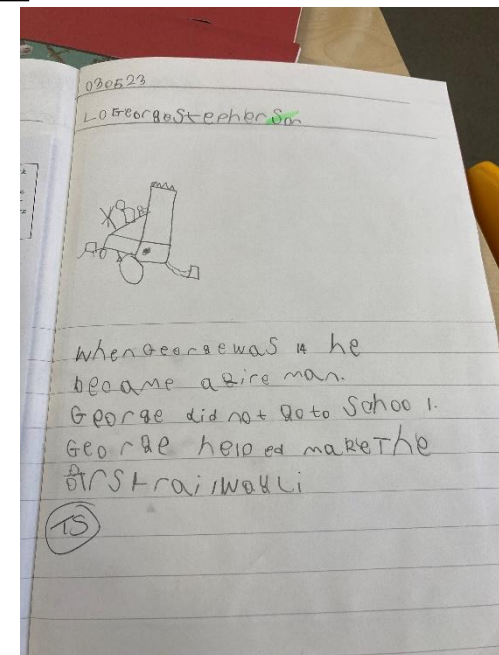 030523
LO George Stephenson
When George was 14 he
became a fire man.
George did not go to School.
George helped make The
first railwayli
TS